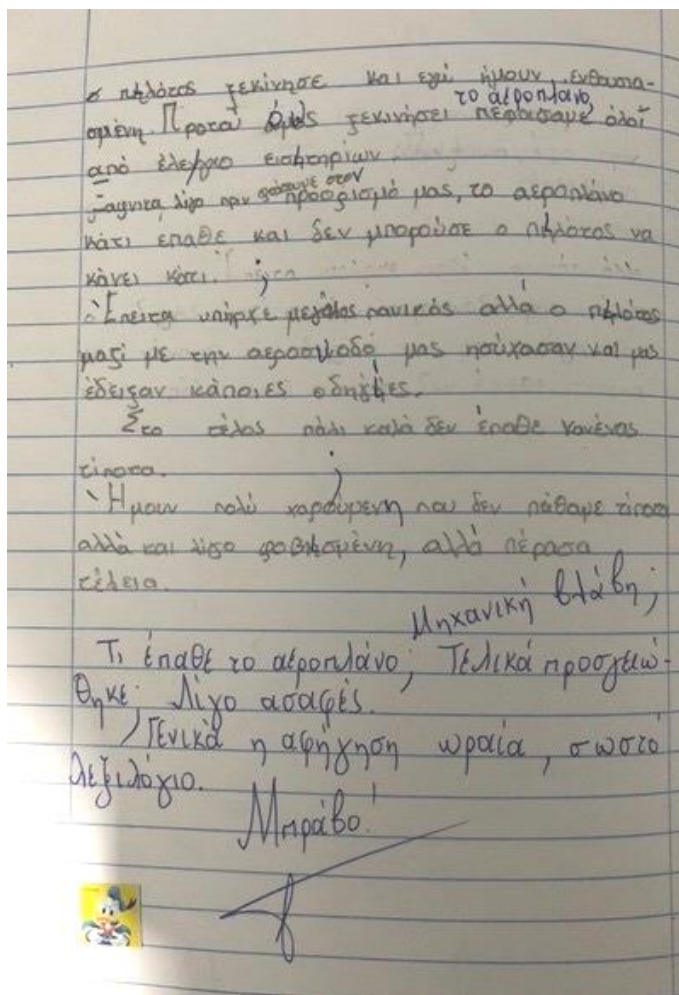 ο πιλότος ξεκίνησε και εγώ ήμουν ενθουσια-
σμένη. Προτού όμως ξεκινήσει το αεροπλάνο περάσαμε όλοι
από έλεγχο εισητηρίων.
Ξαφνικά, λίγο πριν φτάσουμε στον προορισμό μας, το αεροπλάνο
κάτι έπαθε και δεν μπορούσε ο πιλότος να
κάνει κάτι. ;
Έπειτα υπήρχε μεγάλος πανικός αλλά ο πιλότος
μαζί με την αεροσυνοδό μας ησύχασαν και μας
έδειξαν κάποιες οδηγίες.
Στο τέλος πάλι καλά δεν έπαθε κανένας
τίποτα. ;
Ήμουν πολύ χαρούμενη που δεν πάθαμε τίποτα
αλλά και λίγο φοβισμένη, αλλά πέρασα
τέλεια.
Μηχανική βλάβη;
Τι έπαθε το αεροπλάνο; Τελικά προσγειώ-
θηκε; Λίγο ασαφές.
Γενικά η αφήγηση ωραία, σωστό
λεξιλόγιο.
Μπράβο!